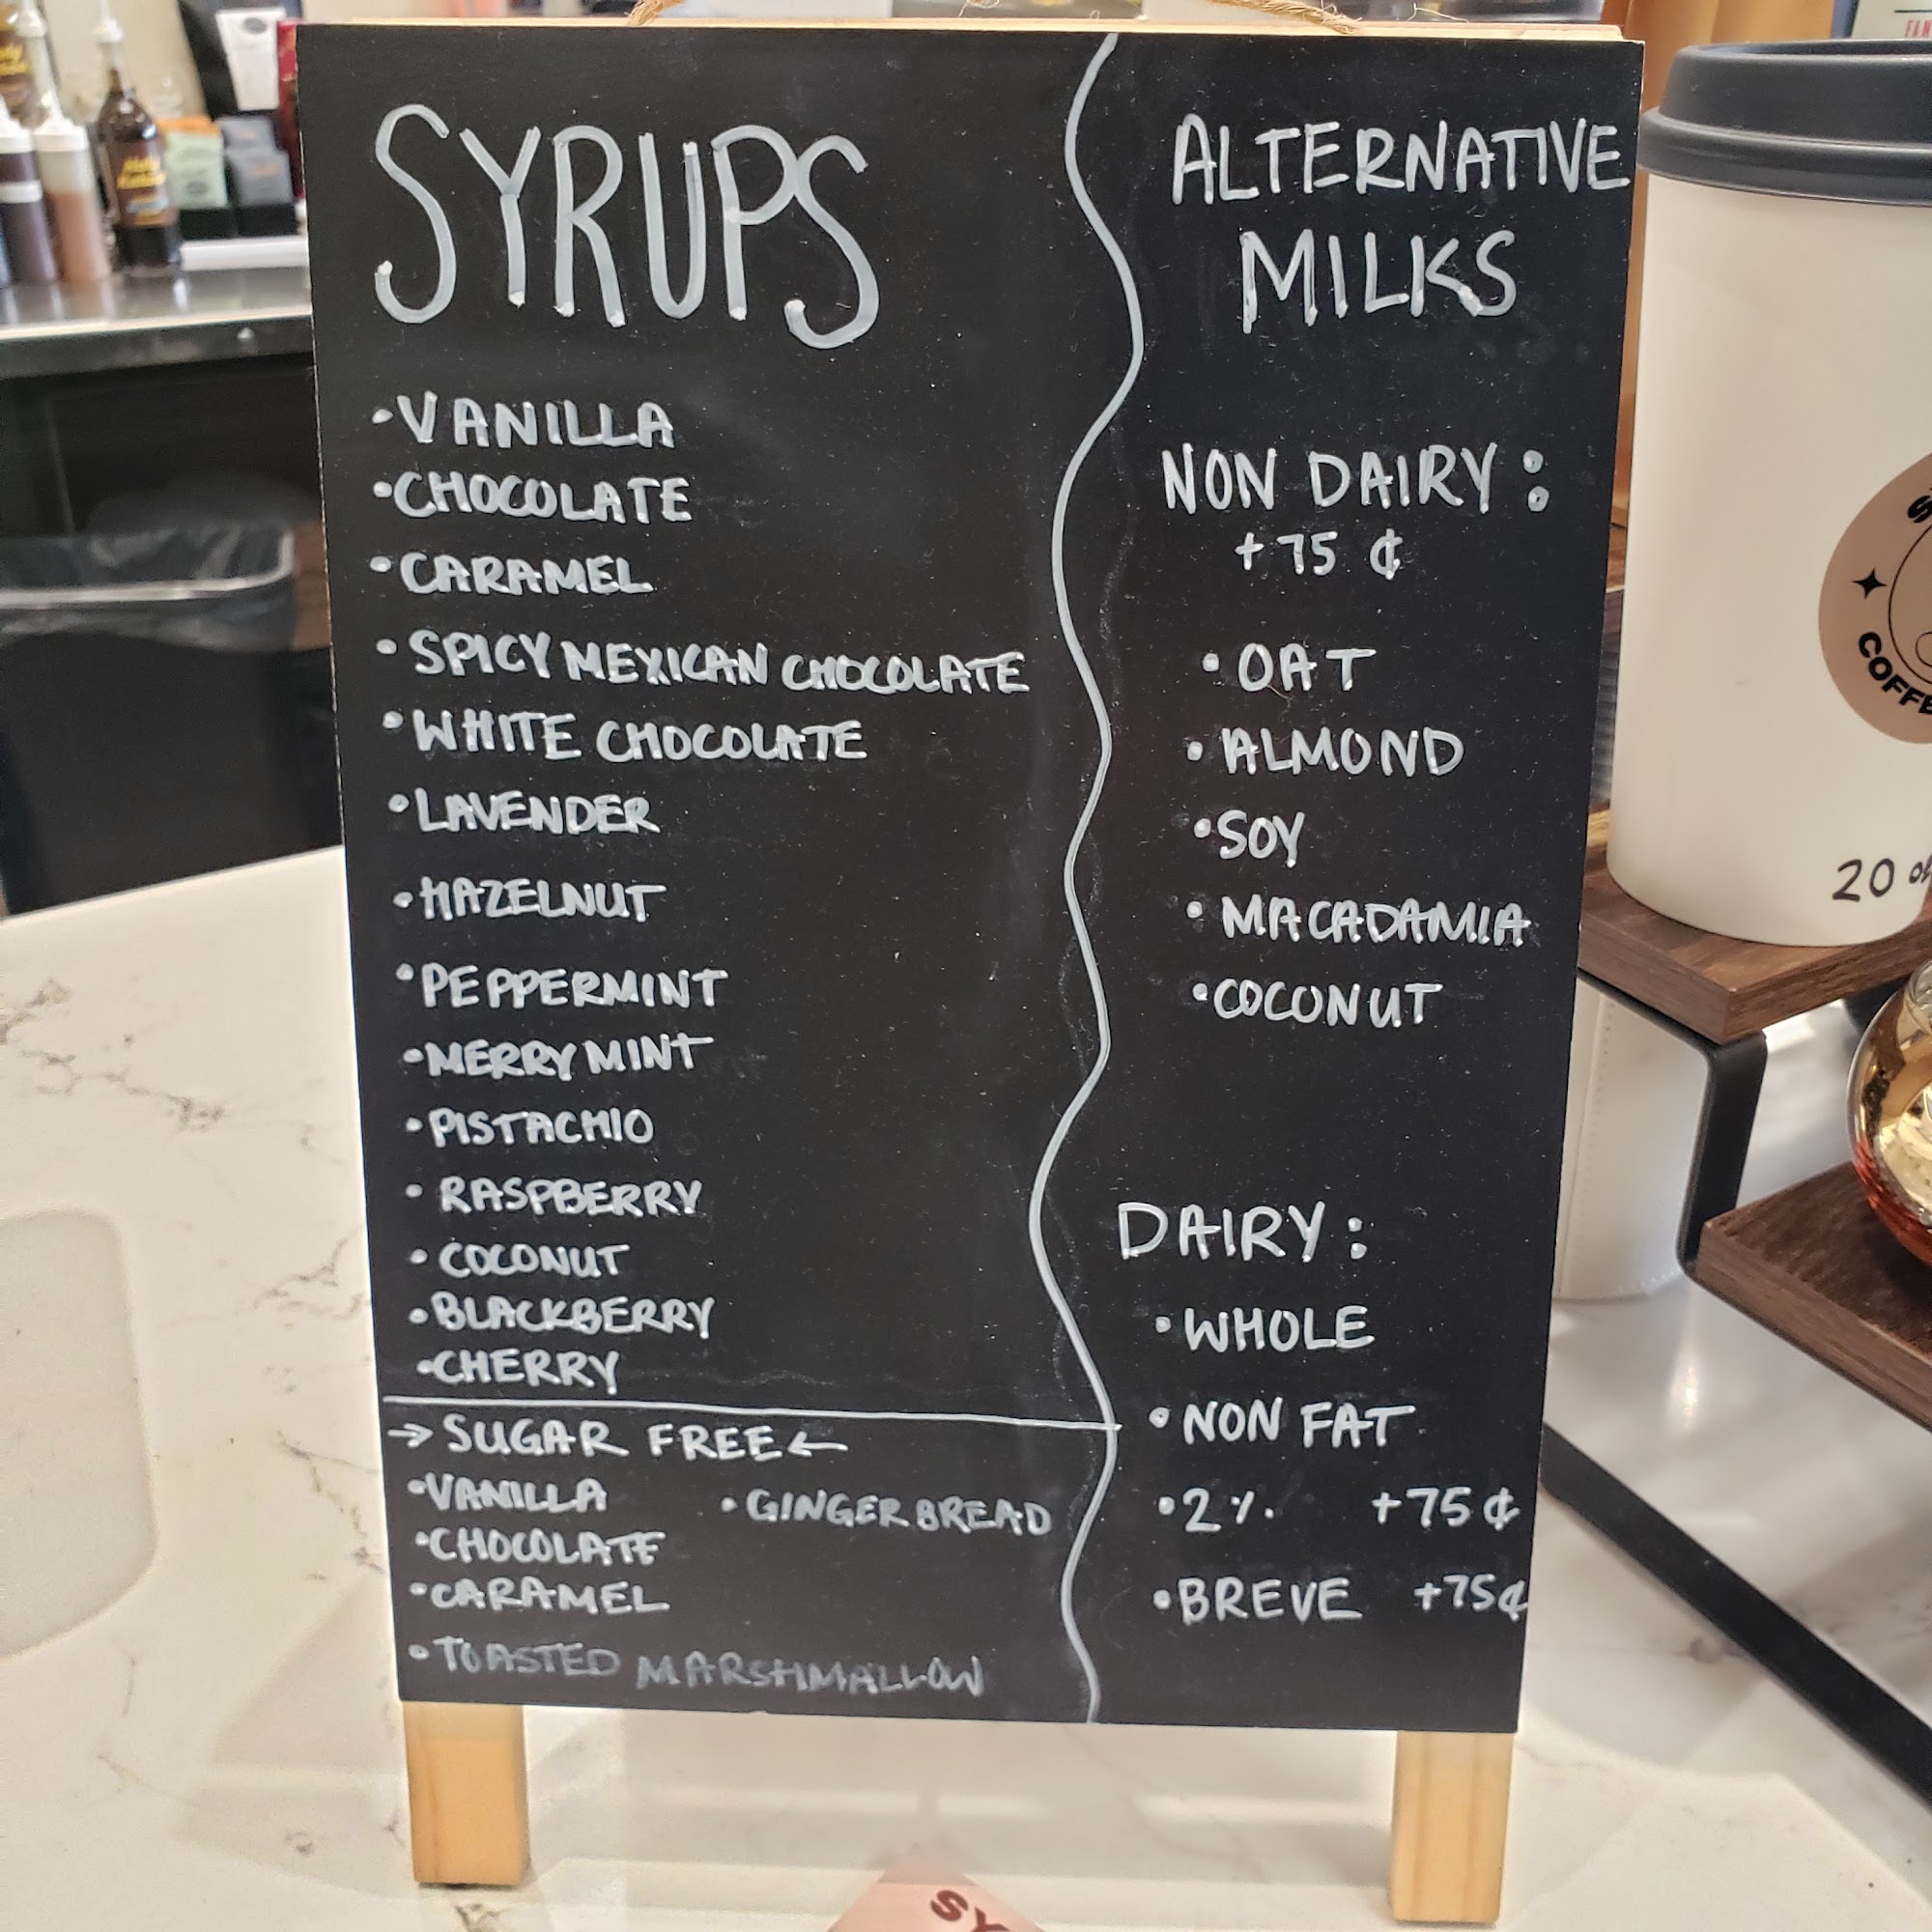 SYRUPS
•VANILLA
•CHOCOLATE
•CARAMEL
•SPICY MEXICAN CHOCOLATE
•WHITE CHOCOLATE
•LAVENDER
•HAZELNUT
•PEPPERMINT
•MERRY MINT
•PISTACHIO
•RASPBERRY
•COCONUT
•BLACKBERRY
•CHERRY
→ SUGAR FREE ←
•VANILLA •GINGERBREAD
•CHOCOLATE
•CARAMEL
•TOASTED MARSHMALLOW
ALTERNATIVE
MILKS
NON DAIRY:
+75 ¢
•OAT
•ALMOND
•SOY
•MACADAMIA
•COCONUT
DAIRY:
•WHOLE
•NON FAT
•2% +75¢
•BREVE +75¢
20
SY